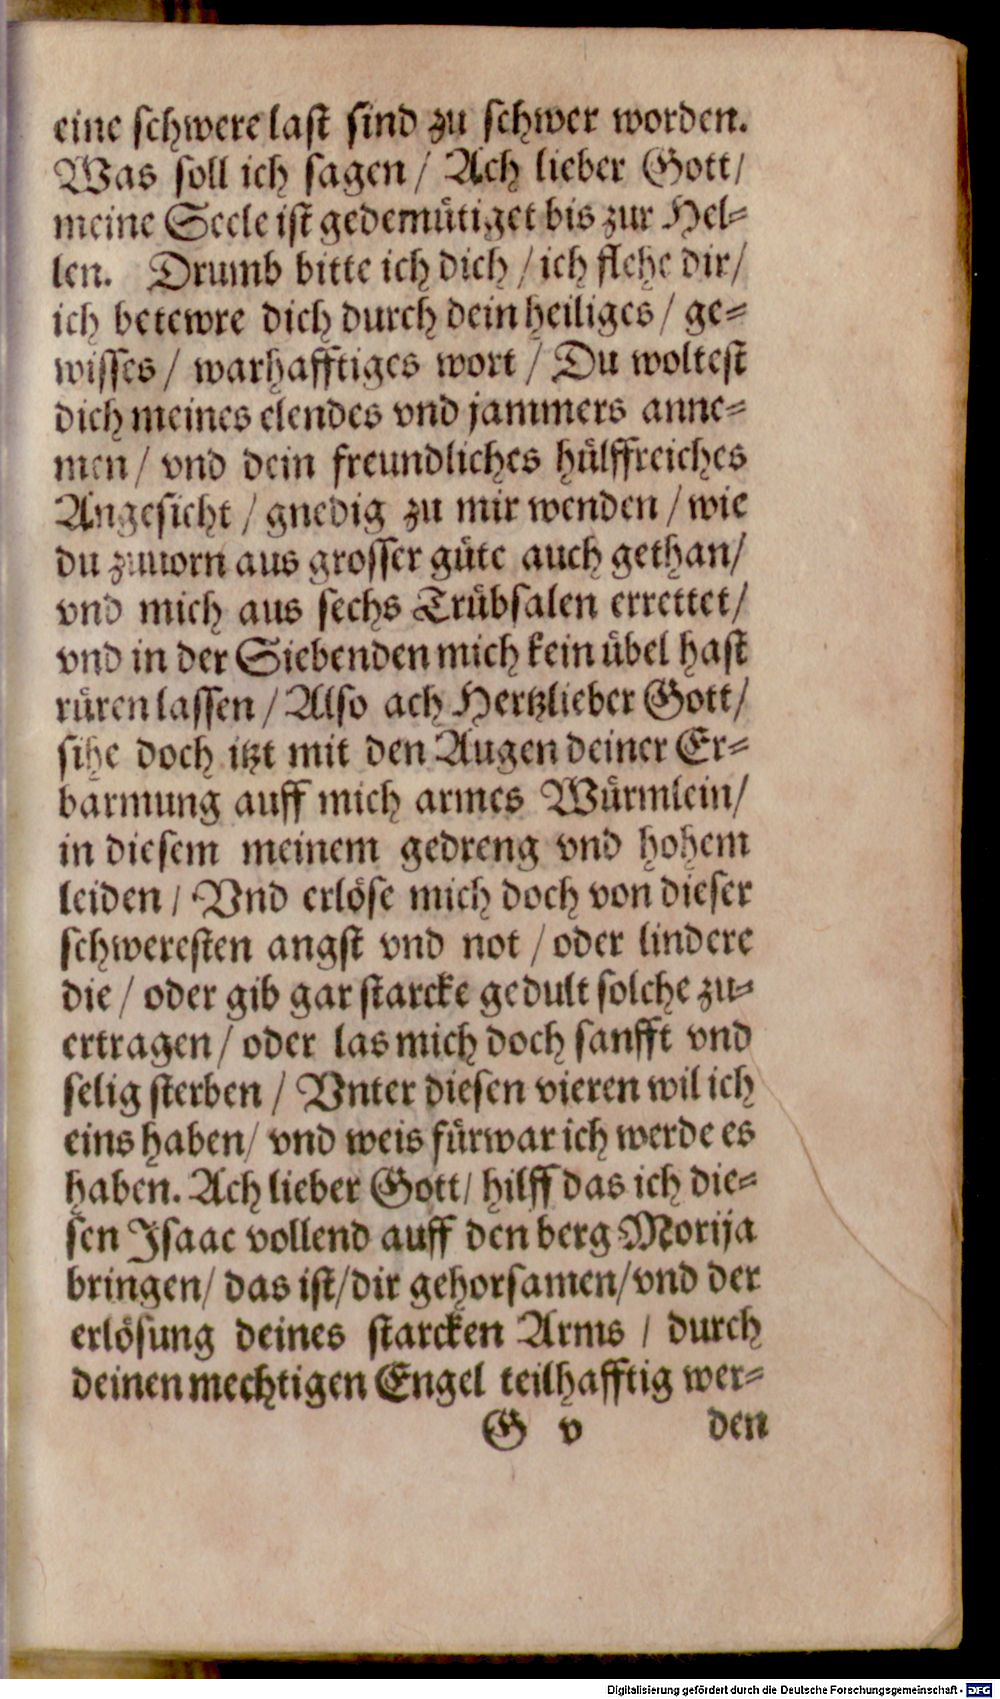 eine schwere last sind zu schwer worden.
Was soll ich sagen / Ach lieber Gott /
meine Seele ist gedemütiget bis zur Hel-
len. Drumb bitte ich dich / ich flehe dir /
ich betewre dich durch dein heiliges / ge-
wisses / warhafftiges wort / Du woltest
dich meines elendes vnd jammers anne-
men / vnd dein freundliches hülffreiches
Angesicht / gnedig zu mir wenden / wie
du zuuorn aus grosser güte auch gethan /
vnd mich aus sechs Trübsalen errettet /
vnd in der Siebenden mich kein übel hast
rüren lassen / Also ach Hertzlieber Gott /
sihe doch itzt mit den Augen deiner Er-
barmung auff mich armes Würmlein /
in diesem meinem gedreng vnd hohem
leiden / Vnd erlöse mich doch von dieser
schweresten angst vnd not / oder lindere
die / oder gib gar starcke gedult solche zu-
ertragen / oder las mich doch sanfft vnd
selig sterben / Vnter diesen vieren wil ich
eins haben / vnd weis fürwar ich werde es
haben. Ach lieber Gott / hilff das ich die-
sen Isaac vollend auff den berg Morija
bringen / das ist / dir gehorsamen / vnd der
erlösung deines starcken Arms / durch
deinen mechtigen Engel teilhafftig wer-
G v den
Digitalisierung gefördert durch die Deutsche Forschungsgemeinschaft - DFG